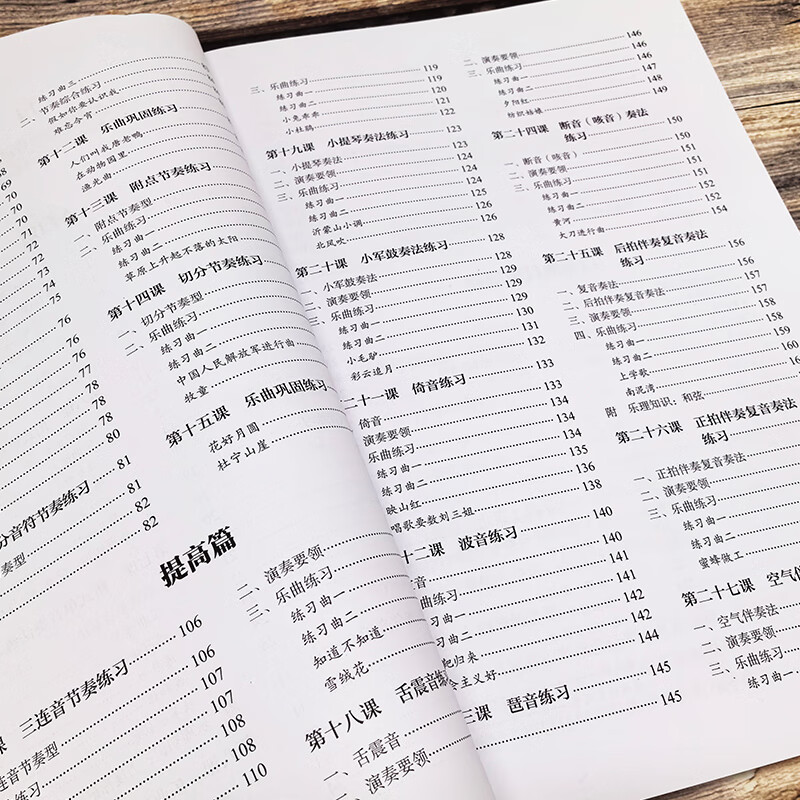 68
69
70
70
71
72
72
73
74
75
76
76
77
78
78
80
分音符节奏练习
81
奏型
81
82
82
练习曲三
二、节奏综合练习
假如你要认识我
难忘今宵
第十二课 乐曲巩固练习
人们叫我唐老鸭
在动物园里
渔光曲
第十三课 附点节奏练习
一、附点节奏型
二、乐曲练习
练习曲一
练习曲二
草原上升起不落的太阳
第十四课 切分节奏练习
一、切分节奏型
二、乐曲练习
练习曲一
练习曲二
中国人民解放军进行曲
牧童
第十五课 乐曲巩固练习
花好月圆
杜宁山崖
提高篇
课 三连音节奏练习 106
三连音节奏型 106
练习 107
107
108
108
110
二、演奏要领
三、乐曲练习
练习曲一
练习曲二
知道不知道
雪绒花
第十八课 舌震音
一、舌震音
二、演奏要领
三、乐曲练习 119
练习曲一 119
练习曲二 120
小兔乖乖 121
小杜鹃 122
第十九课 小提琴奏法练习 123
一、小提琴奏法 123
二、演奏要领 124
三、乐曲练习 124
练习曲一 124
练习曲二 125
沂蒙山小调 126
北风吹 126
第二十课 小军鼓奏法练习 128
一、小军鼓奏法 128
二、演奏要领 129
三、乐曲练习 129
练习曲一 129
练习曲二 130
小毛驴 131
彩云追月 132
二十一课 倚音练习 133
倚音 133
演奏要领 134
乐曲练习 134
练习曲一 134
练习曲二 135
映山红 136
唱歌要数刘三姐 138
十二课 波音练习 140
音 140
141
曲练习 141
练习曲一 142
习曲二 142
归来 144
主义好
三课 琶音练习 145
145
二、演奏要领 146
三、乐曲练习 146
练习曲一 146
练习曲二 147
夕阳红 148
纺织姑娘 149
第二十四课 断音（咳音）奏法
练习 150
一、断音（咳音） 150
二、演奏要领 151
三、乐曲练习 151
练习曲一 151
练习曲二 152
黄河 152
大刀进行曲 154
第二十五课 后拍伴奏复音奏法
练习 156
一、复音奏法 156
二、后拍伴奏复音奏法 157
三、演奏要领 157
四、乐曲练习 158
练习曲一 158
练习曲二 159
上学歌 160
南泥湾
附 乐理知识：和弦
第二十六课 正拍伴奏复音奏法
练习
一、正拍伴奏复音奏法
二、演奏要领
三、乐曲练习
练习曲一
练习曲二
蜜蜂做工
第二十七课 空气
一、空气伴奏法
二、演奏要领
三、乐曲练习
练习曲一